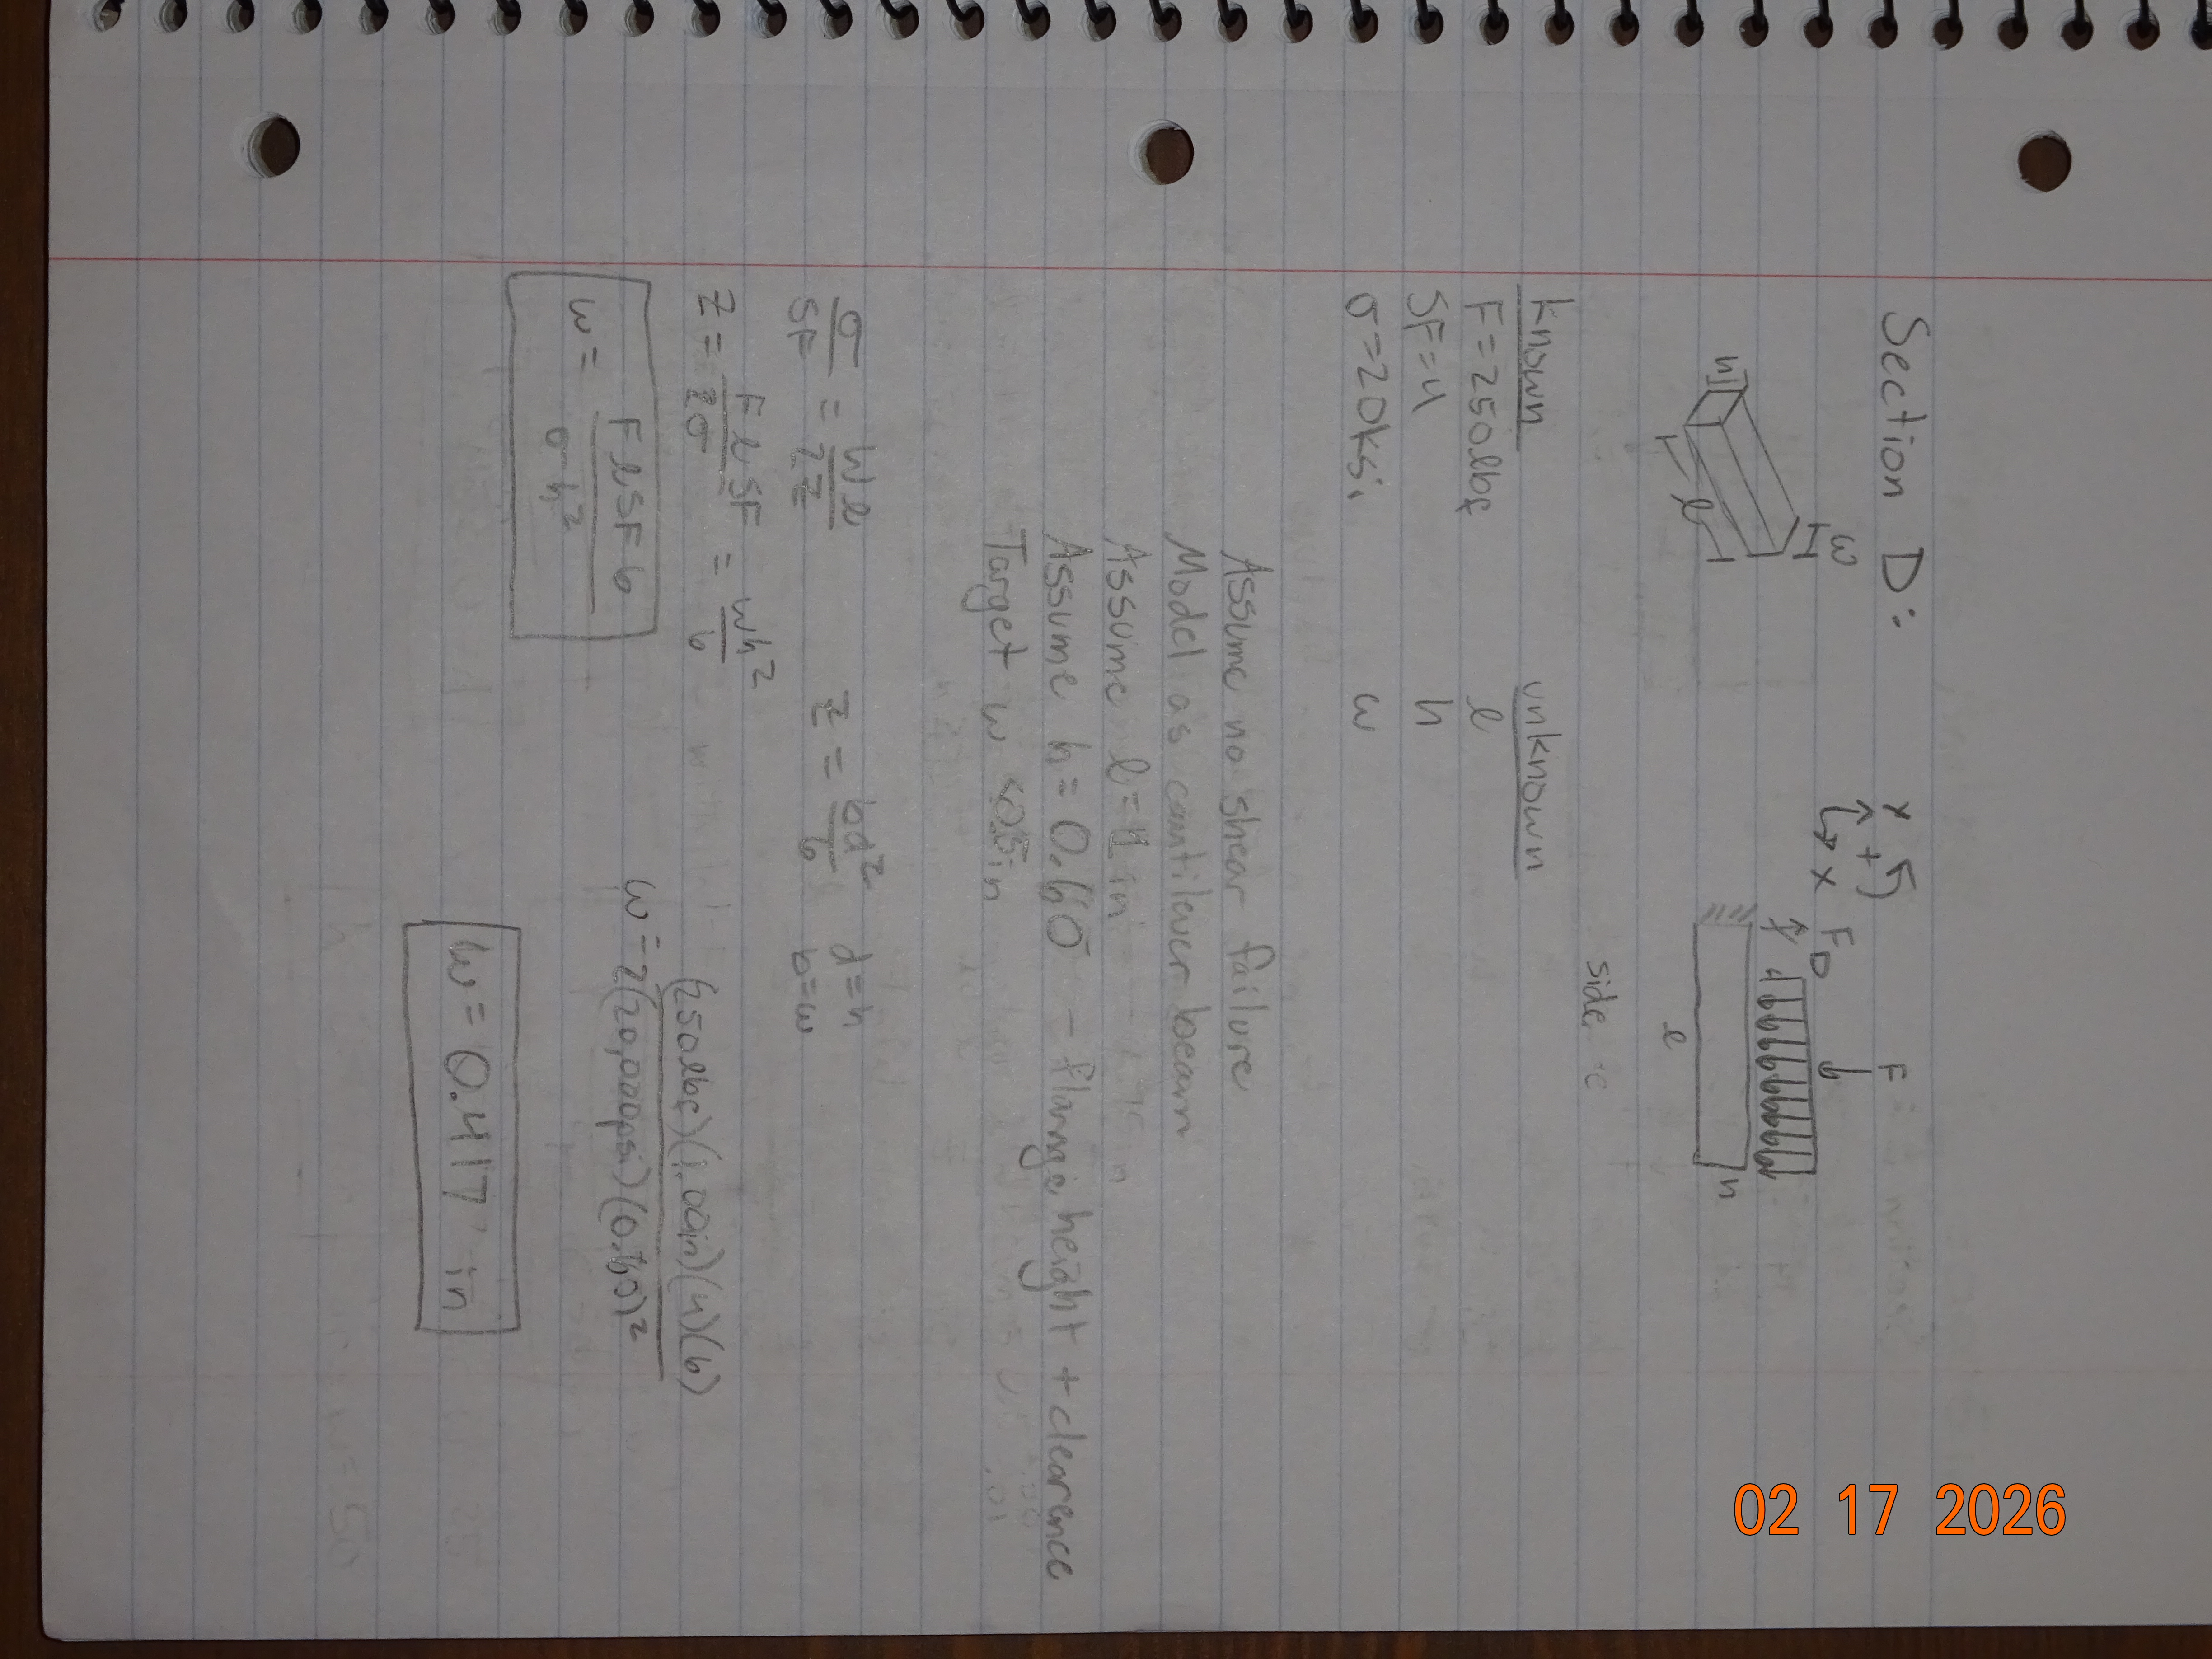 Section D:
Y
+
x
F
F_D
h
w
l
l
h
side
known
unknown
F=250lbf
l
SF=4
h
σ=20ksi
w
Assume no shear failure
Model as cantilever beam
Assume l=1 in
Assume h=0.60 - flange height + clearence
Target w <0.5in
σ/SF = Wl/2Z
Z = bd²/6
d=h
b=w
Z = FlSF/2σ = wh²/6
w = FlSF6/σh²
w = (250lbf)(1.00in)(4)(6)/2(20,000psi)(0.60)²
w=0.417 in
02 17 2026